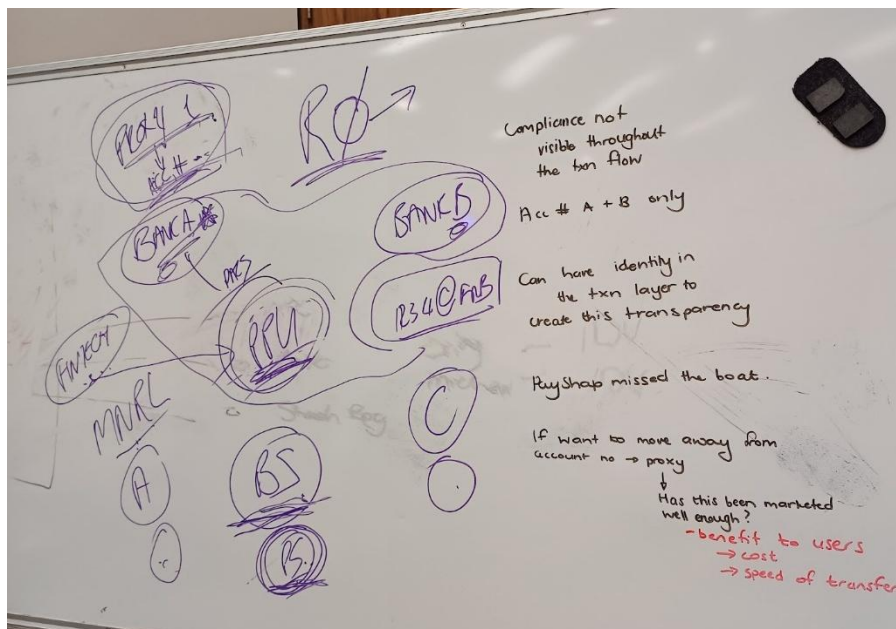 PROXY 1
ACC #
RØ
BANK A
BANK B
1234@FNB
FINTECH
MNRC
C
A
BS
Compliance not
visible throughout
the txn flow
Acc # A + B only
Can have identity in
the txn layer to
create this transparency
PayShap missed the boat.
If want to move away from
account no → proxy
↓
Has this been marketed
well enough?
- benefit to users
→ cost
→ speed of transfer